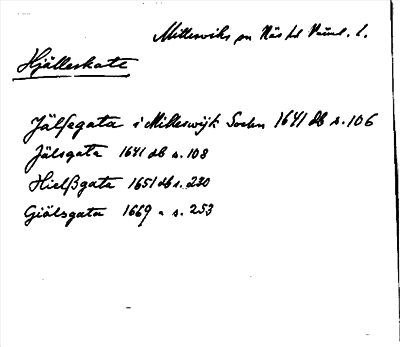 Millesviks sn Näs hd Värml. l.
Hjälleskate
Jälsegata i Milleswijk Sochn 1641 db s. 106
Jälsgata 1641 db s. 108
Hielßgata 1651 db s. 230
Giölsgata 1669 " s. 253